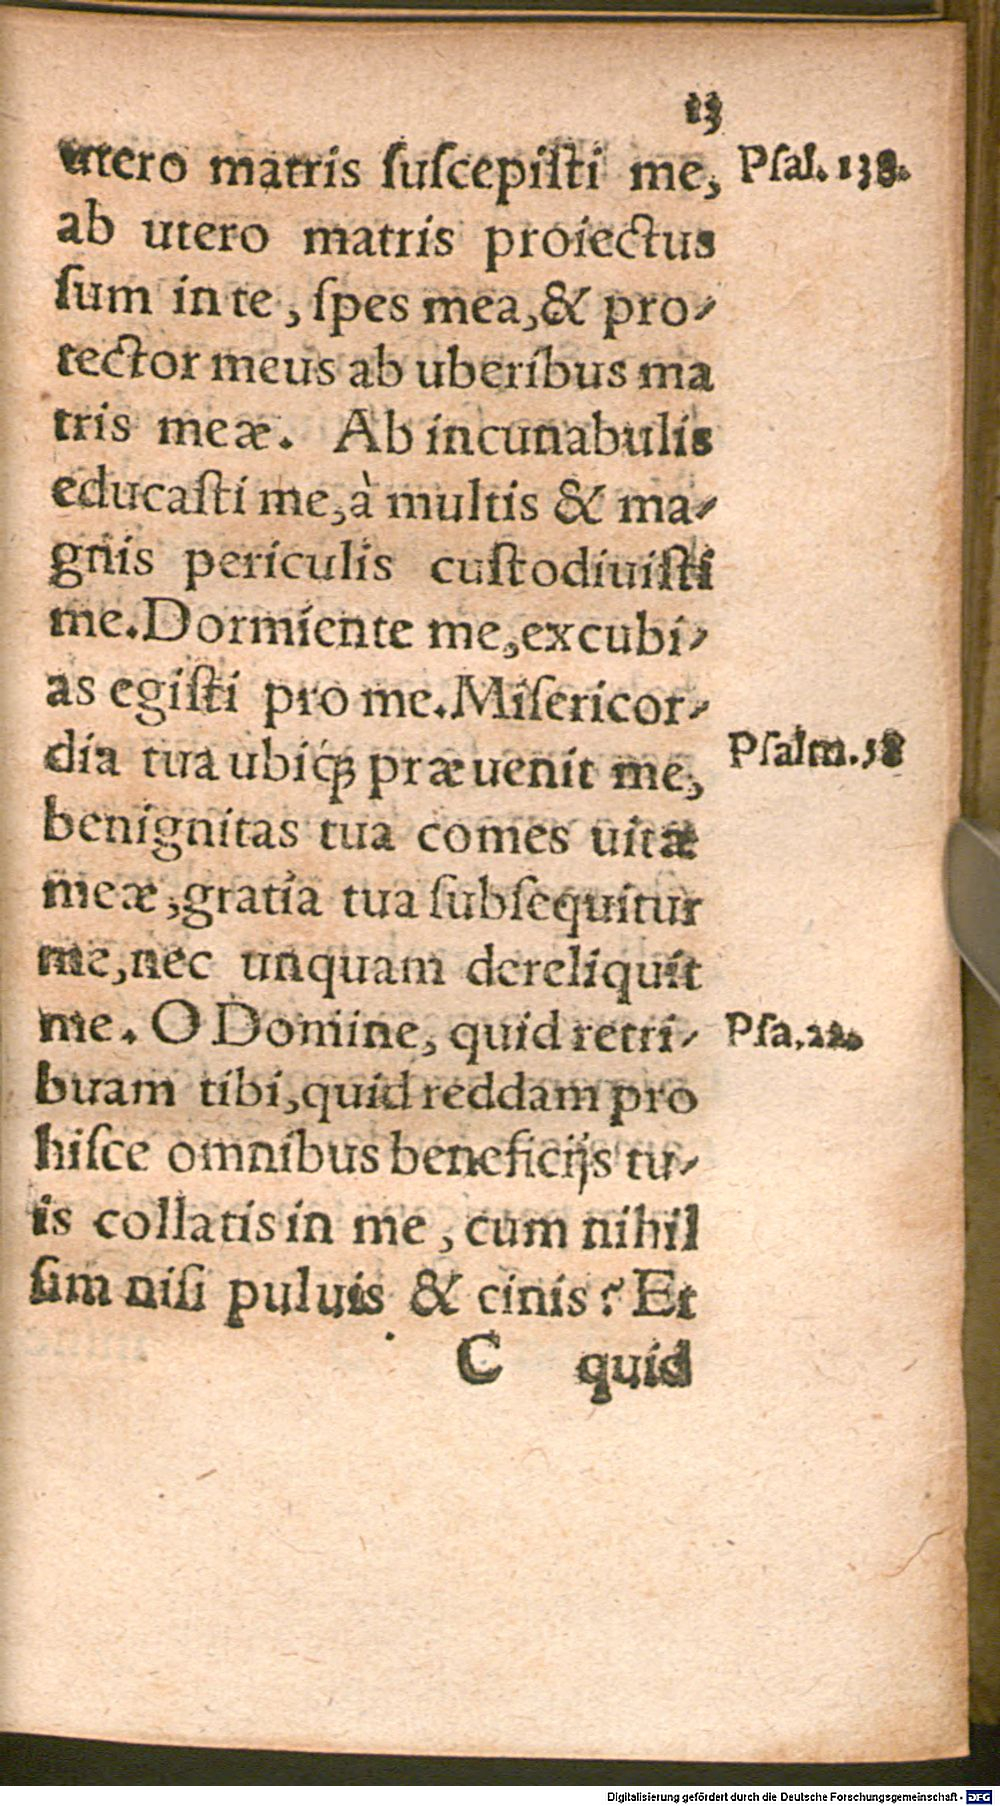 13
utero matris ſuſcepiſti me, Pſal. 138.
ab utero matris proiectus
ſum in te, ſpes mea, & pro-
tector meus ab uberibus ma
tris meæ. Ab incunabulis
educaſti me, à multis & ma-
gnis periculis cuſtodiuiſti
me. Dormiente me, excubi-
as egiſti pro me. Miſericor-
dia tua ubiq́ꝫ præuenit me, Pſalm. 58
benignitas tua comes uitæ
meæ, gratia tua ſubſequitur
me, nec unquam dereliquit
me. O Domine, quid retri- Pſa. 22.
buam tibi, quid reddam pro
hiſce omnibus beneficijs tu-
is collatis in me, cum nihil
ſim niſi puluis & cinis? Et
C quid
Digitalisierung gefördert durch die Deutsche Forschungsgemeinschaft - DFG